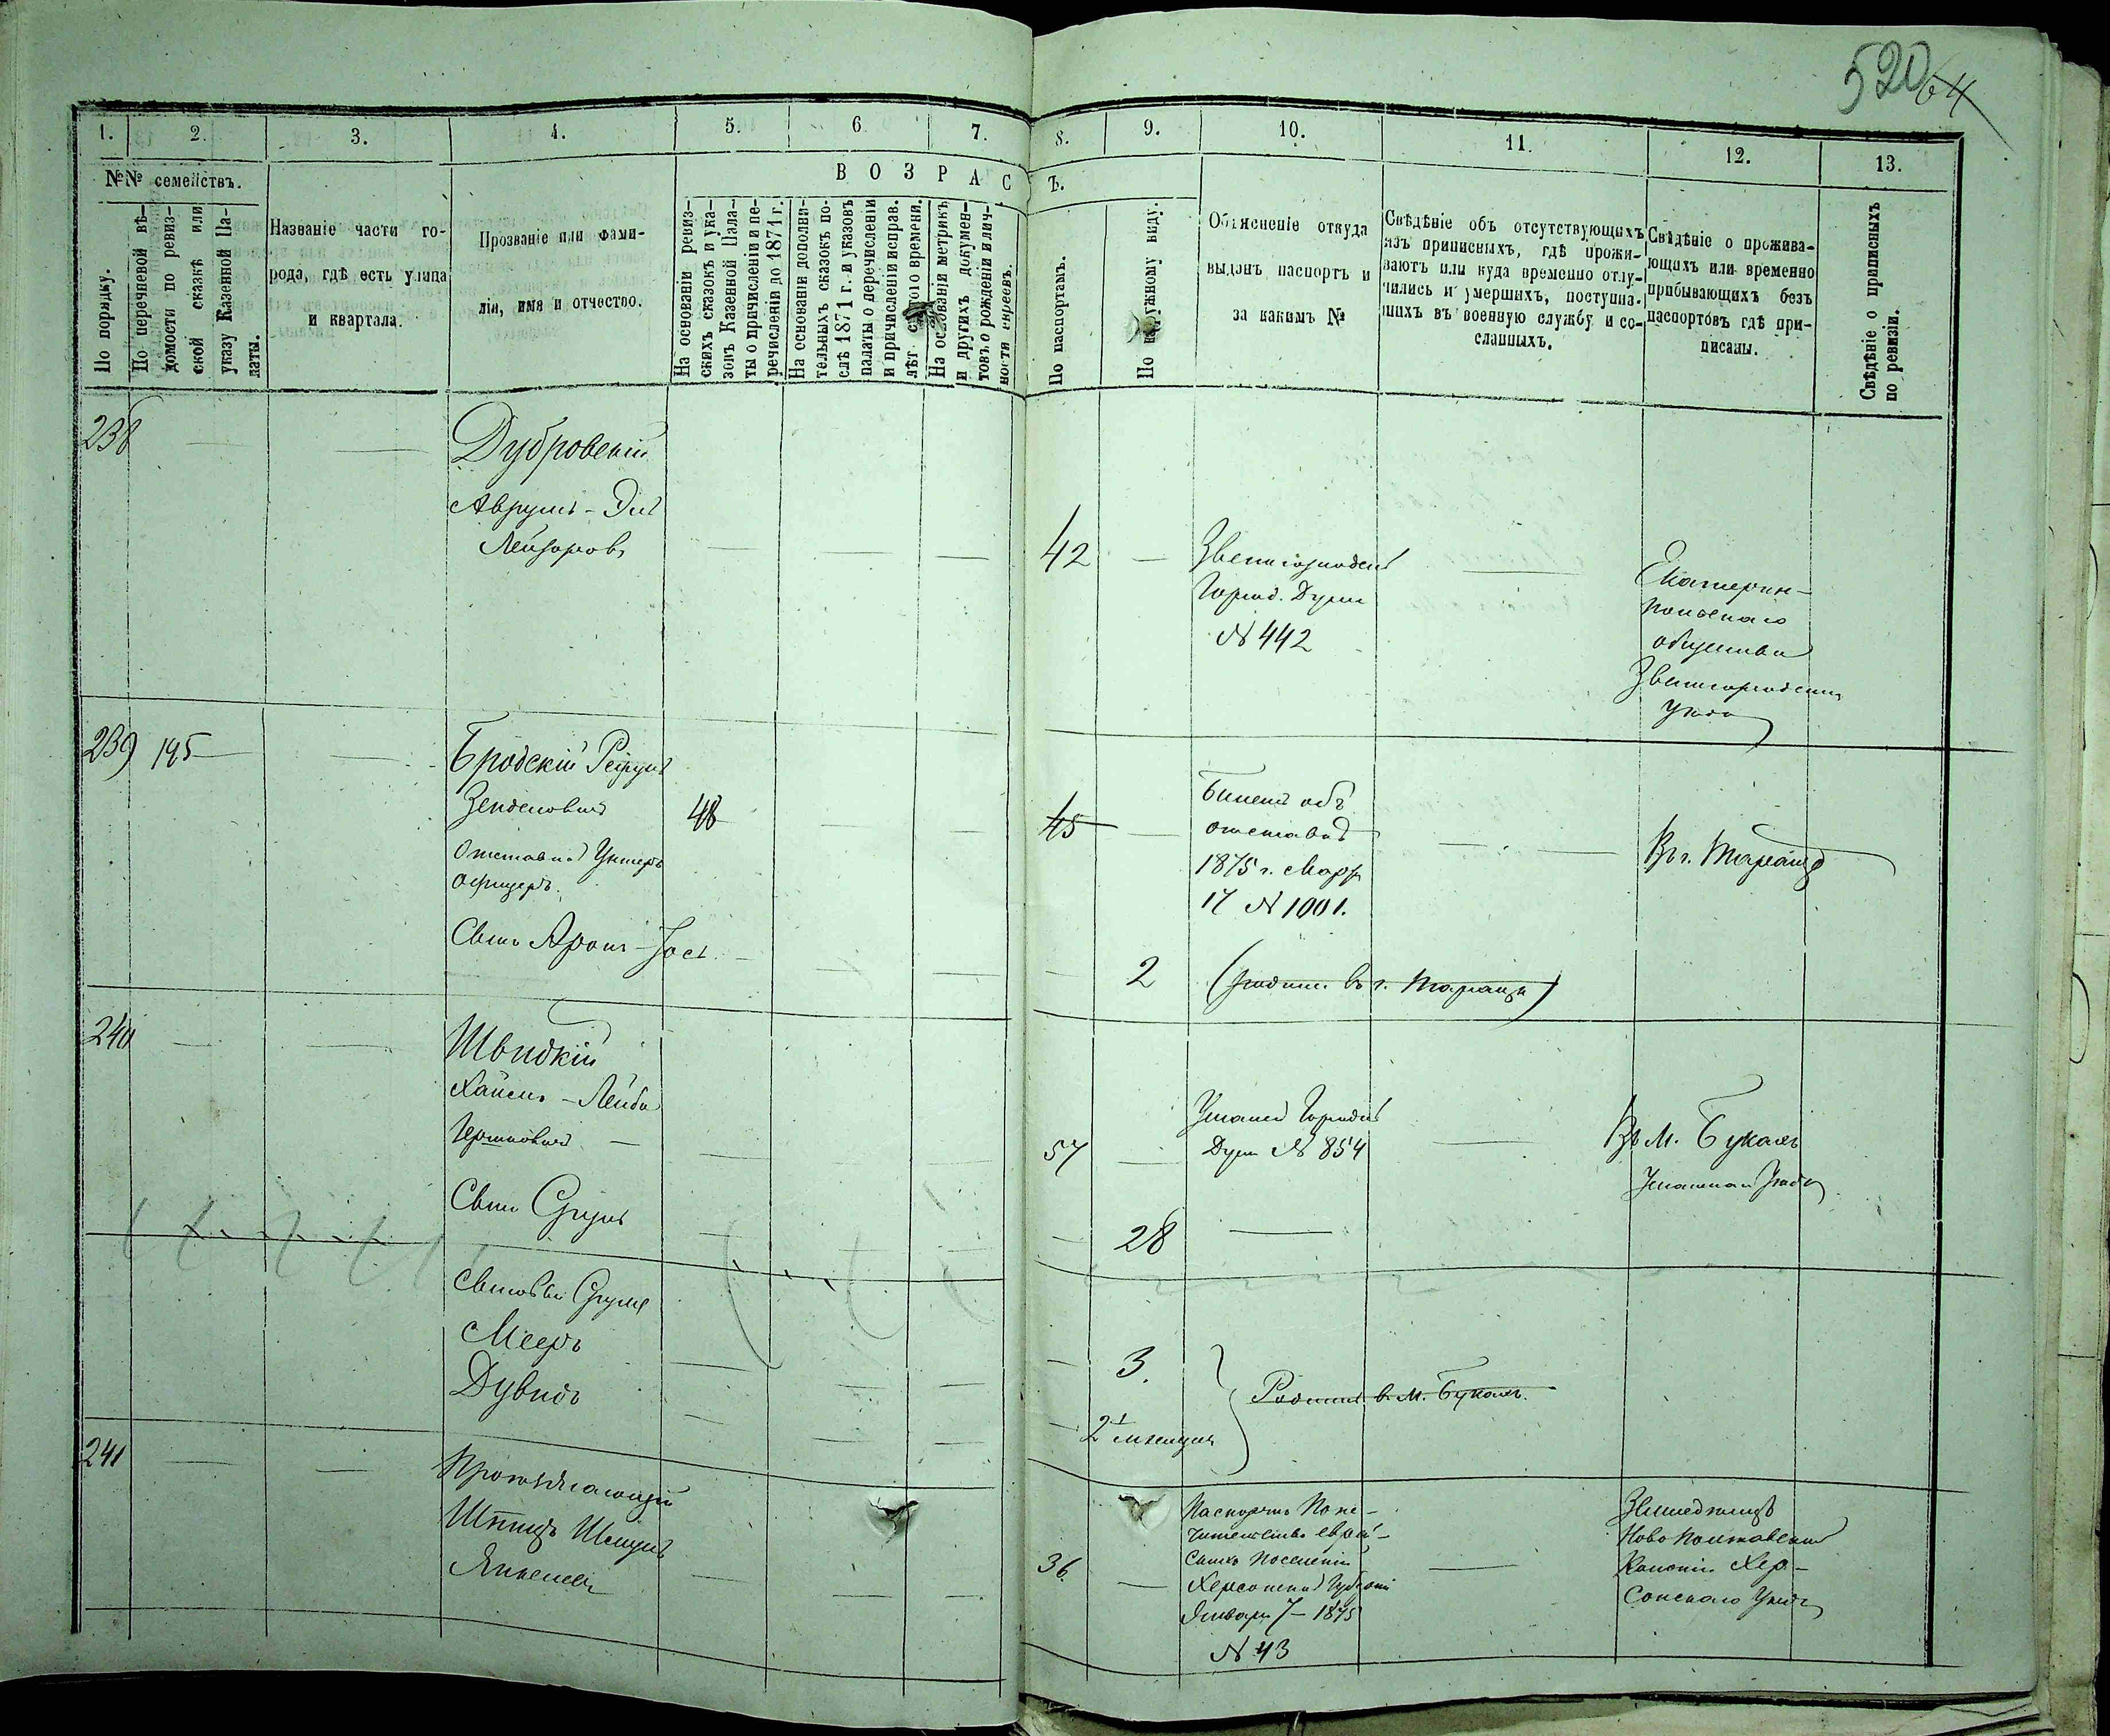 520 64
1. 2. 3. 4. 5. 6 7. 8. 9. 10. 11. 12. 13.
№№ семействъ.
По порядку.
По перечневой вѣ-
домости по ревиз-
ской сказкѣ или
указу Казенной Па-
латы.
Названіе части го-
рода, гдѣ есть улица
и квартала.
Прозваніе или фами-
лія, имя и отчество.
ВОЗРАСТЪ.
На основаніи ревиз-
скихъ сказокъ и ука-
зовъ Казенной Пала-
ты о причисленіи и пе-
речисленіи до 1871 г.
На основаніи дополни-
тельныхъ сказокъ по-
слѣ 1871 г. и указовъ
палаты о перечисленіи
и причисленіи исправ.
лѣт сего времени.
На основаніи метрикъ
и другихъ докумен-
товъ о рожденіи и лич-
ности евреевъ.
По паспортамъ.
По наружному виду.
Объясненіе откуда
выданъ паспортъ и
за какимъ №
Свѣдѣніе объ отсутствующихъ
изъ приписныхъ, гдѣ прожи-
ваютъ или куда временно отлу-
чились и умершихъ, поступив-
шихъ въ военную службу и со-
сланныхъ.
Свѣдѣніе о прожива-
ющихъ или временно
прибывающихъ безъ
паспортовъ гдѣ при-
писаны.
Свѣдѣніе о приписныхъ
по ревизіи.
238
Дубровскій
Аврумъ-Эль
Лейзоровъ
42
Звенигородск
Город. Думы
№ 442
Екатерин-
польскаго
общества
Звенигородскаго
Уѣзда
239 195
Бродскій
Зенделовичъ
Отставной Унтеръ
Офицеръ.
48
45
Билетъ объ
отставкѣ
1875 г. Марта
17 № 1001.
Въ г. Таращѣ
Сынъ Аронъ-Іось
2
(родил. въ г. Тараща)
240
Швидкій
Хаимъ-Лейба
Гершковичъ
57
Уманск Городск
Думы № 854
Въ М. Букахъ
Уманскаго Уѣзда
Сынъ Сруль
28
Сыновья Сруля
Мееръ
Дувидъ
3.
2 мѣсяца
Родились в. М. Букахъ.
241
Штицъ Шмуль
Янкелев
36
Паспортъ Попе-
чительства еврей-
скихъ поселеній
Херсонской Губерніи
Января 7 – 1875
№ 43
Земледѣлецъ
Ново Полтавской
Колоніи Хер-
сонскаго Уѣзда